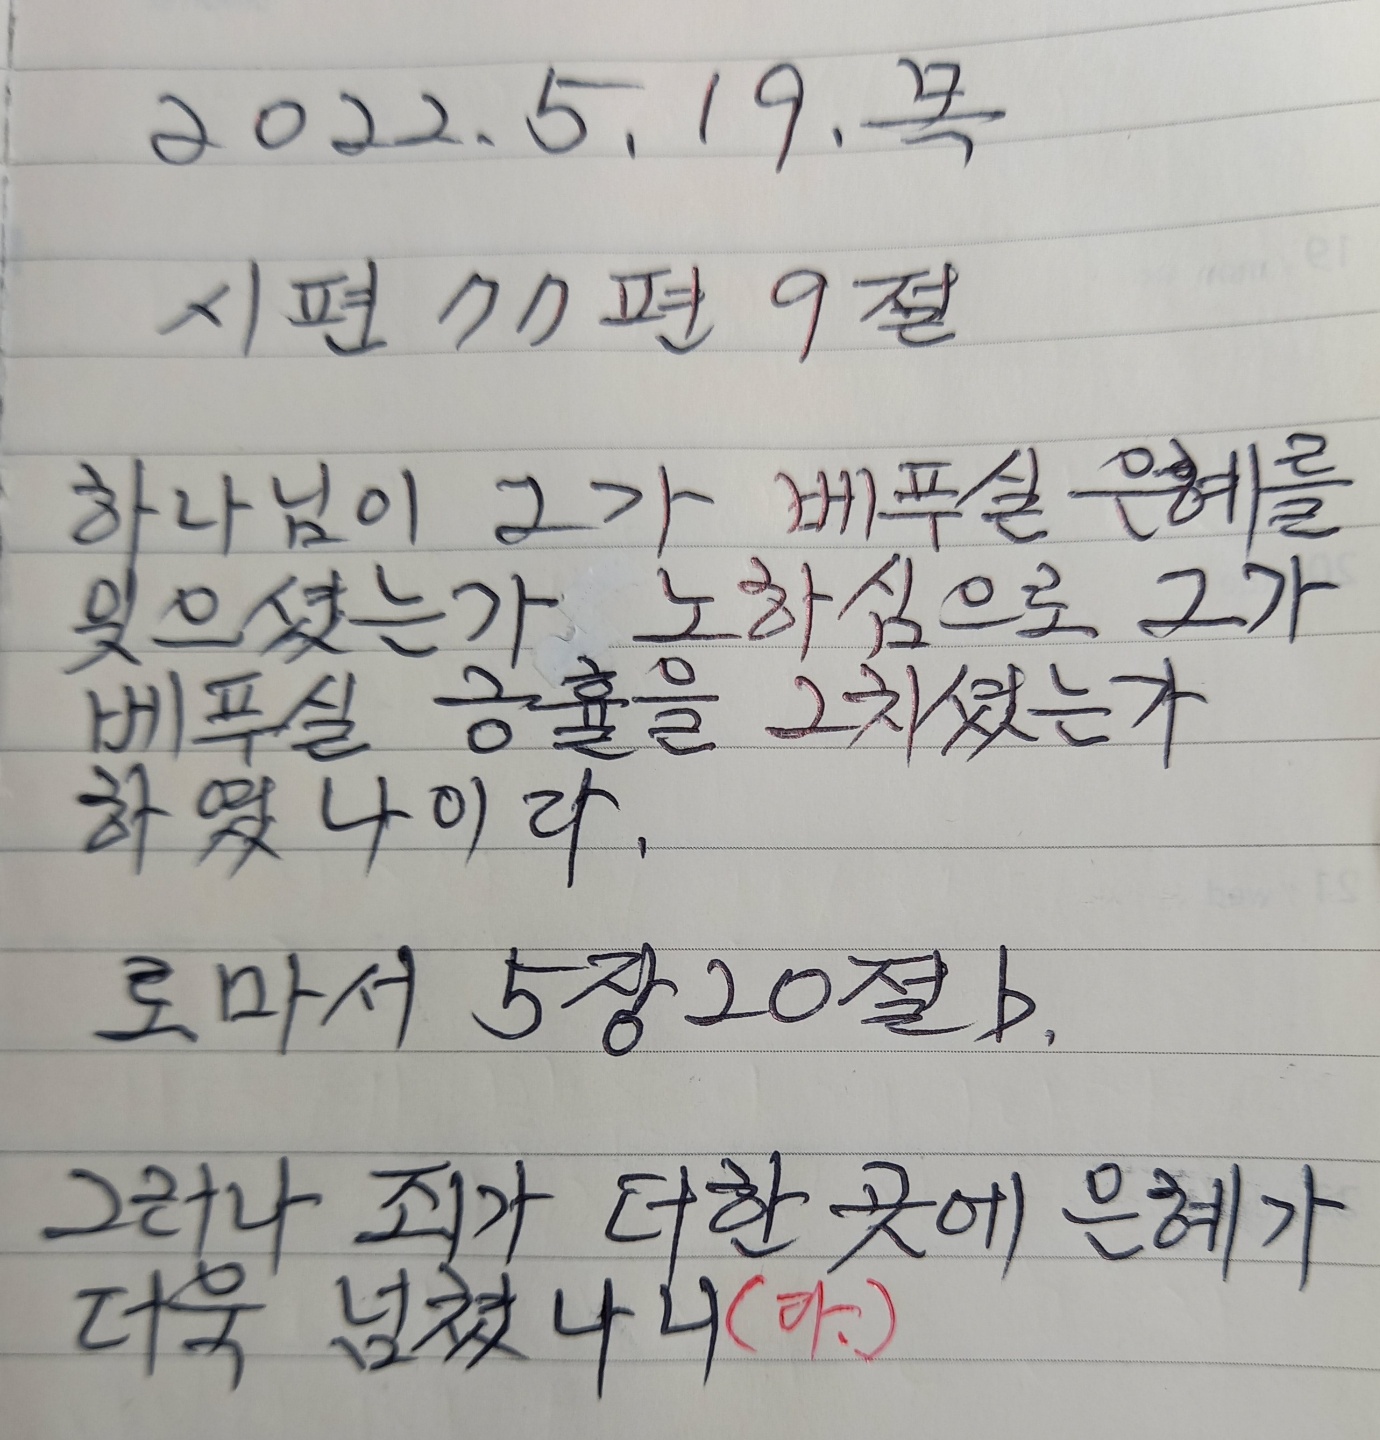 2022.5.19.목
시편 77편 9절
하나님이 그가 베푸실 은혜를
잊으셨는가 노하심으로 그가
베푸실 긍휼을 그치셨는가
하였나이다.
로마서 5장20절b.
그러나 죄가 더한 곳에 은혜가
더욱 넘쳤나니(라.)